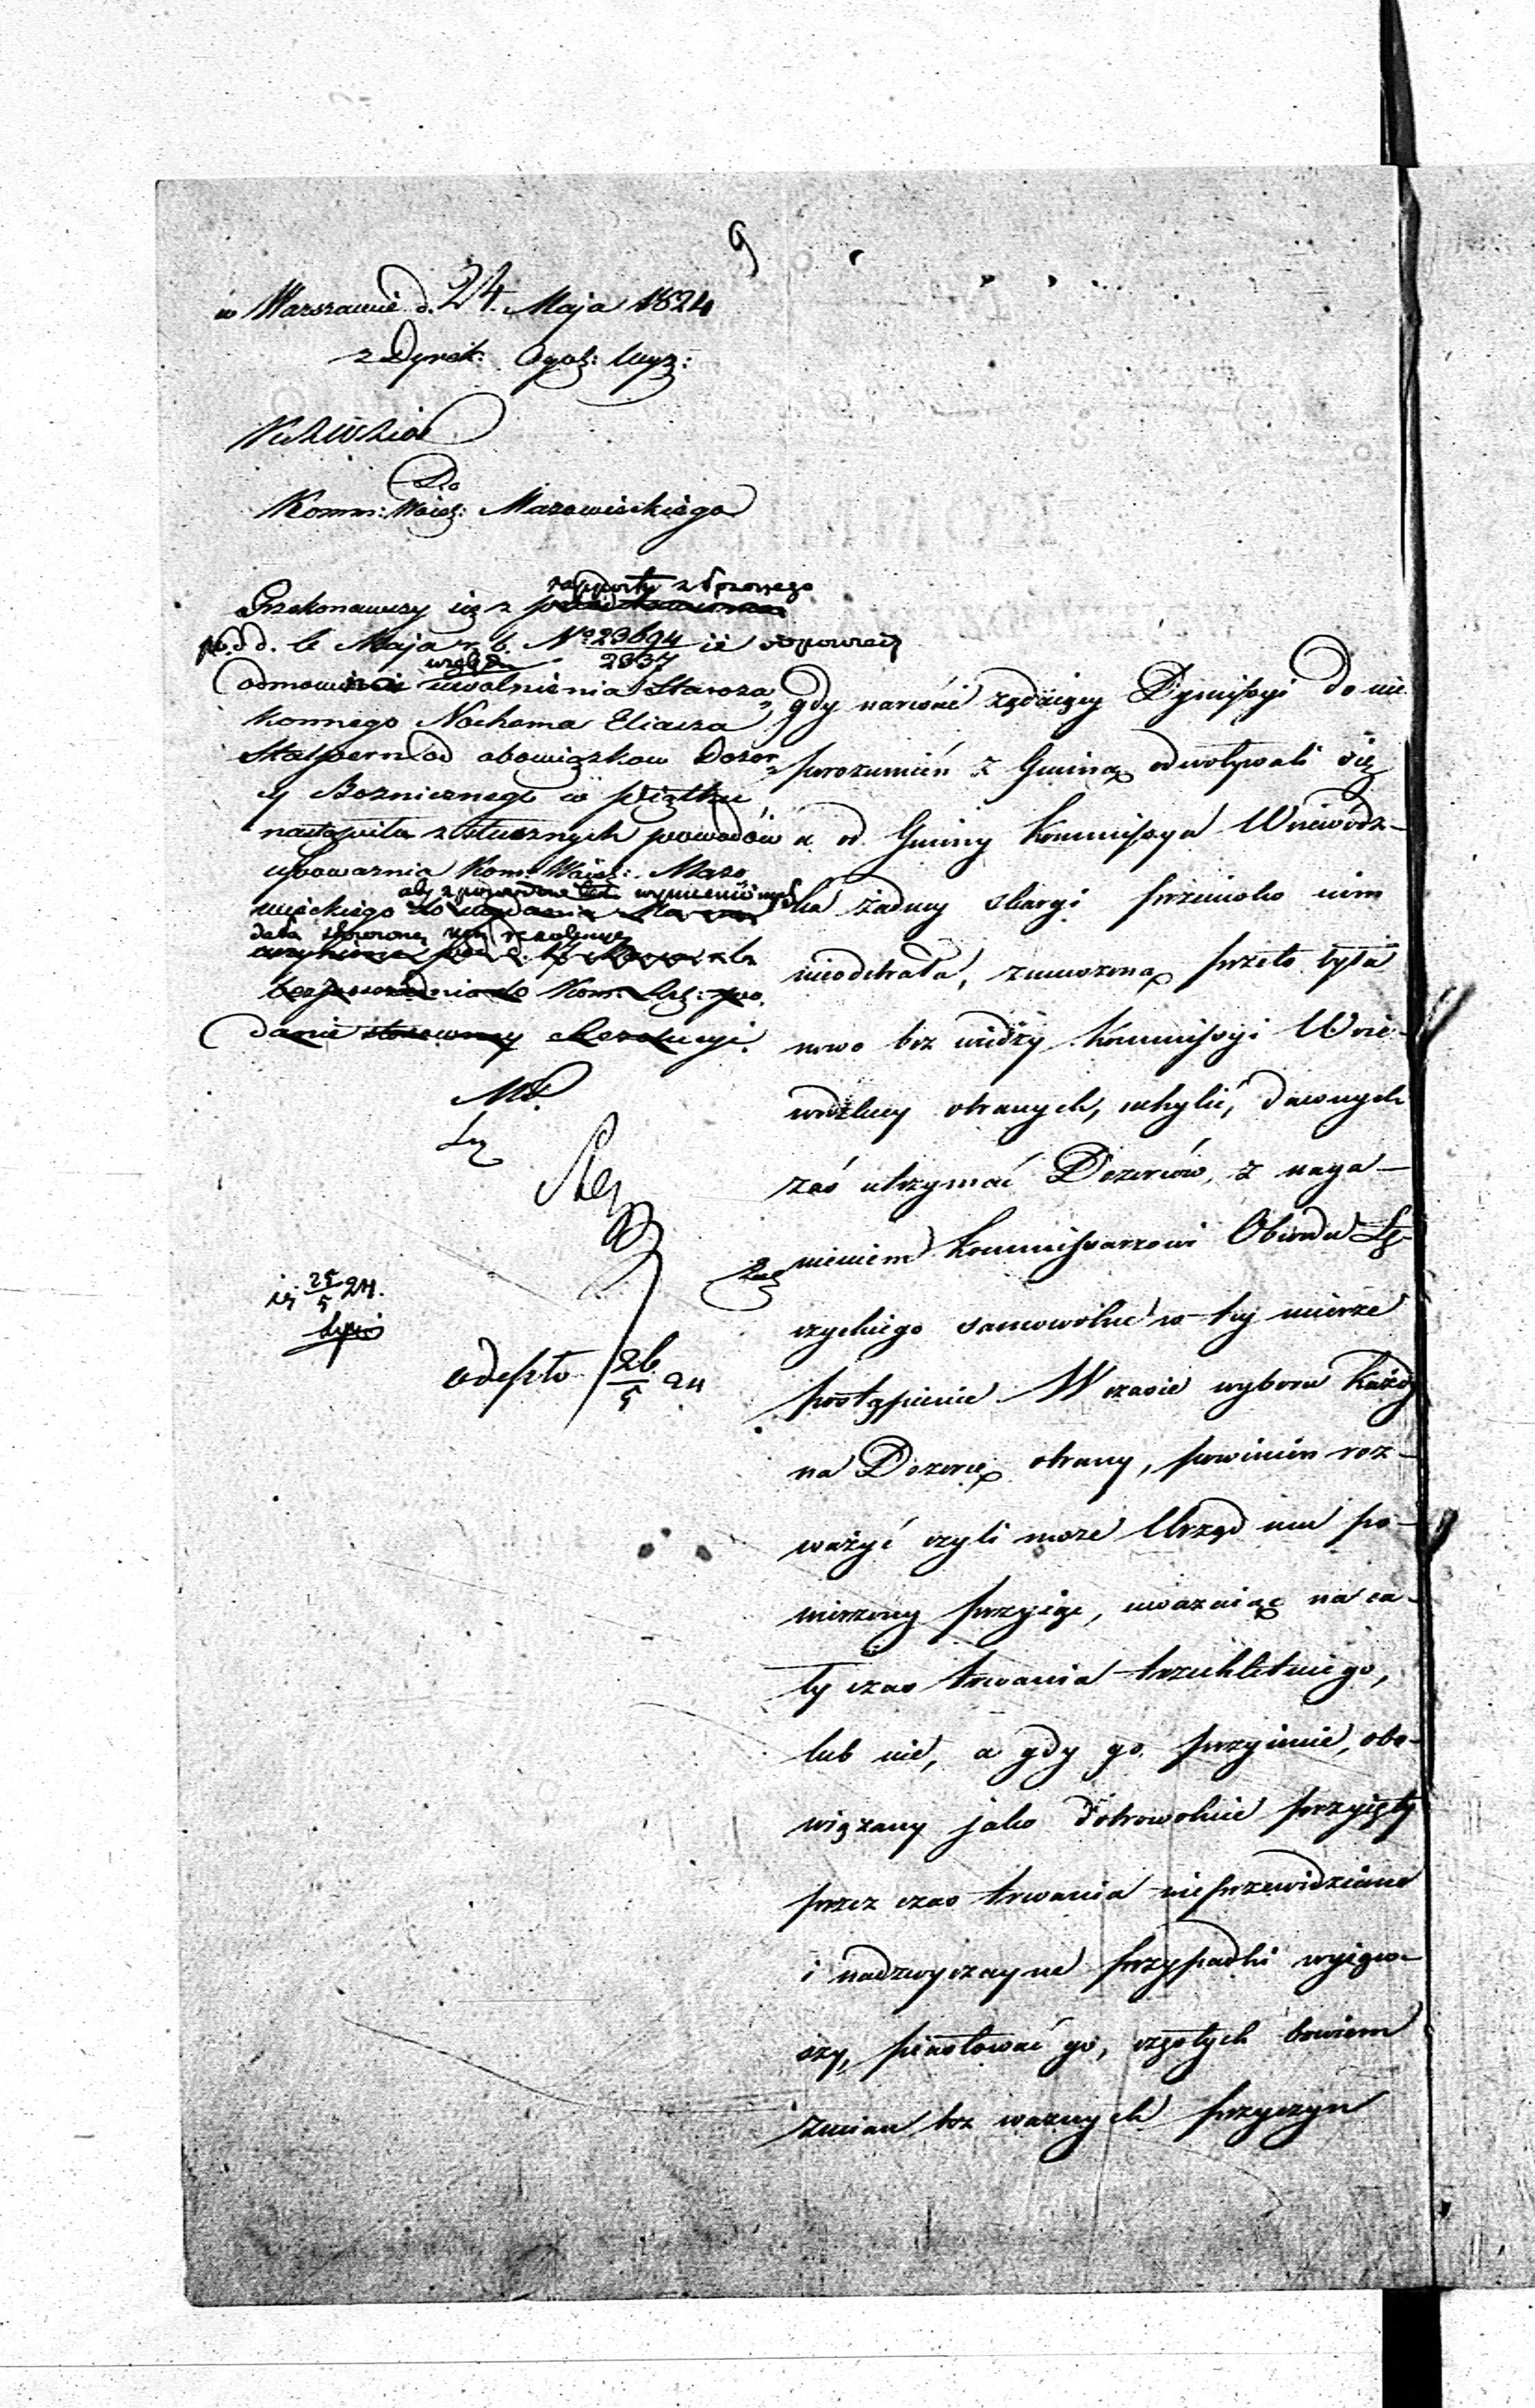 9
w Warszawie d. 24. Maja 1824
z Dyrek:
Do
Komm: Wojew: Mazowieckiego
rapportu złożonego
Przekonawszy się z
pod d. 6 Maja r. b. No 23694/2837 iż
względu
uwolnienia Staroza=
konnego Nochema Eliasza
od obowiązkow Dozor=
cy Boznicznego w Piątku
nastąpiła z słusznych powodów
upoważnia Kom: Wojew: Mazo
wieckiego
dała stosowną rezolucyę
Kom:
danie stosowney Rezolucyi.
25/5 24.
odeszło 26/5 24
gdy narówie żądaiący Dymissyi do nie
porozumień z Gminą odwoływali się
a od Gminy Kommissya Wojewodz-
ka żadney skargi przeciwko nim
nieodebrała, zmuszoną przeto była
nowo bez wiedzy Kommissyi Woie-
wodzkiey obranych, uchylić, dawnych
zaś utrzymać Dozorców, z naga-
nieniem Kommissarzowi Obwodu Łę-
czyckiego samowolne w tey mierze
postąpienie. W czasie wyboru każdy
na Dozorcę obrany, powinien roz-
ważyć czyli może Urząd mu po-
wierzony przyiąć, uważaiąc na ca-
ły czas trwania trzechletniego,
lub nie, a gdy go przyimie, obo-
wiązany jako dobrowolnie przyięty
przez czas trwania nieprzewidziane
i nadzwyczayne przypadki wyiąw-
szy, piastować go, częstych bowiem
zmian bez ważnych przyczyn